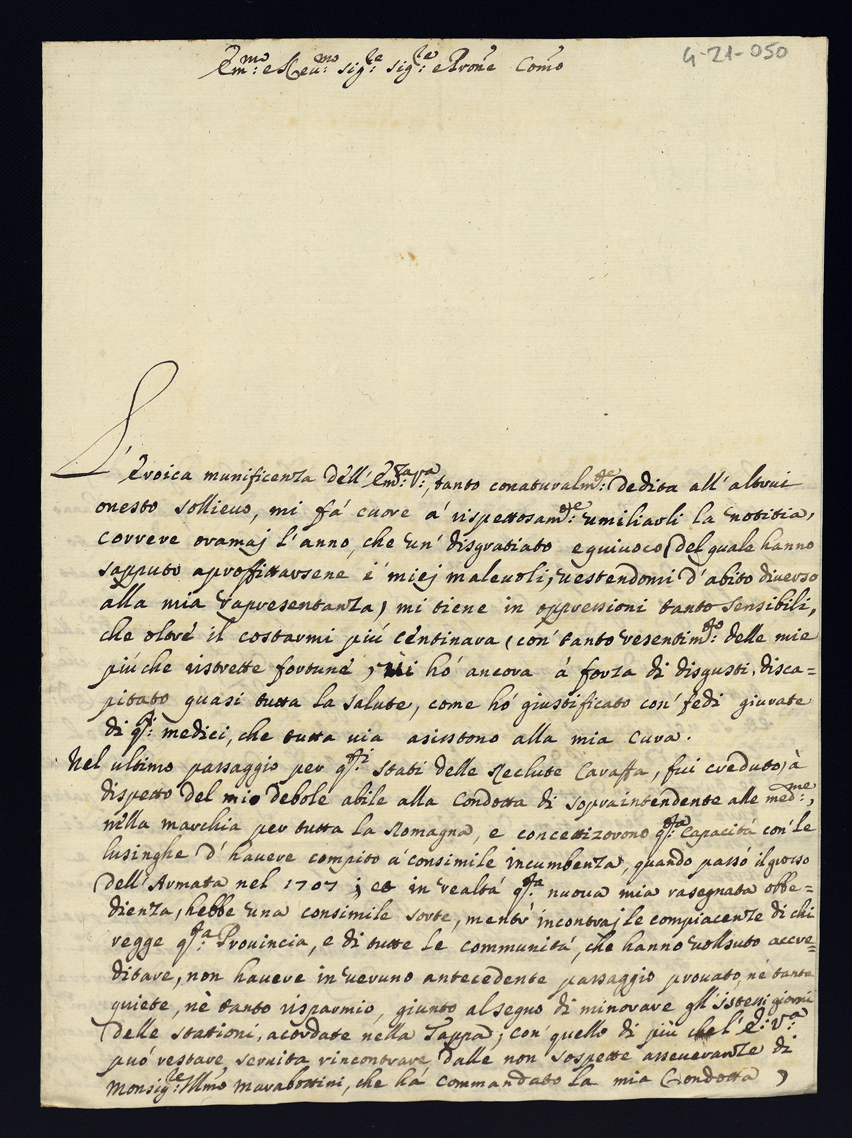 G-21-050
Em:mo e Reu:mo sig:re sig:re e Prone Com̃o
L'eroica munificenza dell'Em:za V:a, tanto conaturalm:te dedita all'altrui
onesto sollieuo, mi fa' cuore a' rispettosam:te umiliarli la notitia,
correre oramaj l'anno, che un' disgratiato equiuoco (del quale hanno
sapputo aproffittarsene i' miej maleuoli, uestendomi d'abito diuerso
alla mia rapresentanza) mi tiene in oppressioni tanto sensibili,
che oltre il costarmi più centinara (con' tanto resentim:to delle mie
più che ristrette fortune) ui ho' ancora à forza di disgusti, disca=
pitato quasi tutta la salute, come ho' giustificato con' fedi giurate
di q:sti medici, che tutta uia asistono alla mia cura.
Nel ultimo passaggio per q:sti stati delle Reclute Caraffa, fui creduto, à
dispetto del mio debole abile alla Condotta di sopraintendente alle med:me,
nella marchia per tutta la Romagna, e concettizorono q:sta Capacità con' le
lusinghe d'hauere compito a' consimile incumbenza, quando passò il grosso
dell'Armata nel 1707; et in realtà q:sta nuoua mia rasegnata obbe=
dienza, hebbe una consimile sorte, mentr' incontraj le compiacenze di chi
regge q:sta Prouincia, e di tutte le communità, che hanno uolsuto accre=
ditare, non hauere in ueruno antecedente passaggio prouato, nè tanta
quiete, nè tanto risparmio, giunto al segno di minorare gl'istessi giorni
delle stationi, acordate nella Tappa; con' quello di più che l'E: V:a
può restare seruita rincontrare dalle non' sospette asseueranze di
Monsig:re Illmo Marabottini, che ha' commandato la mia Condotta,